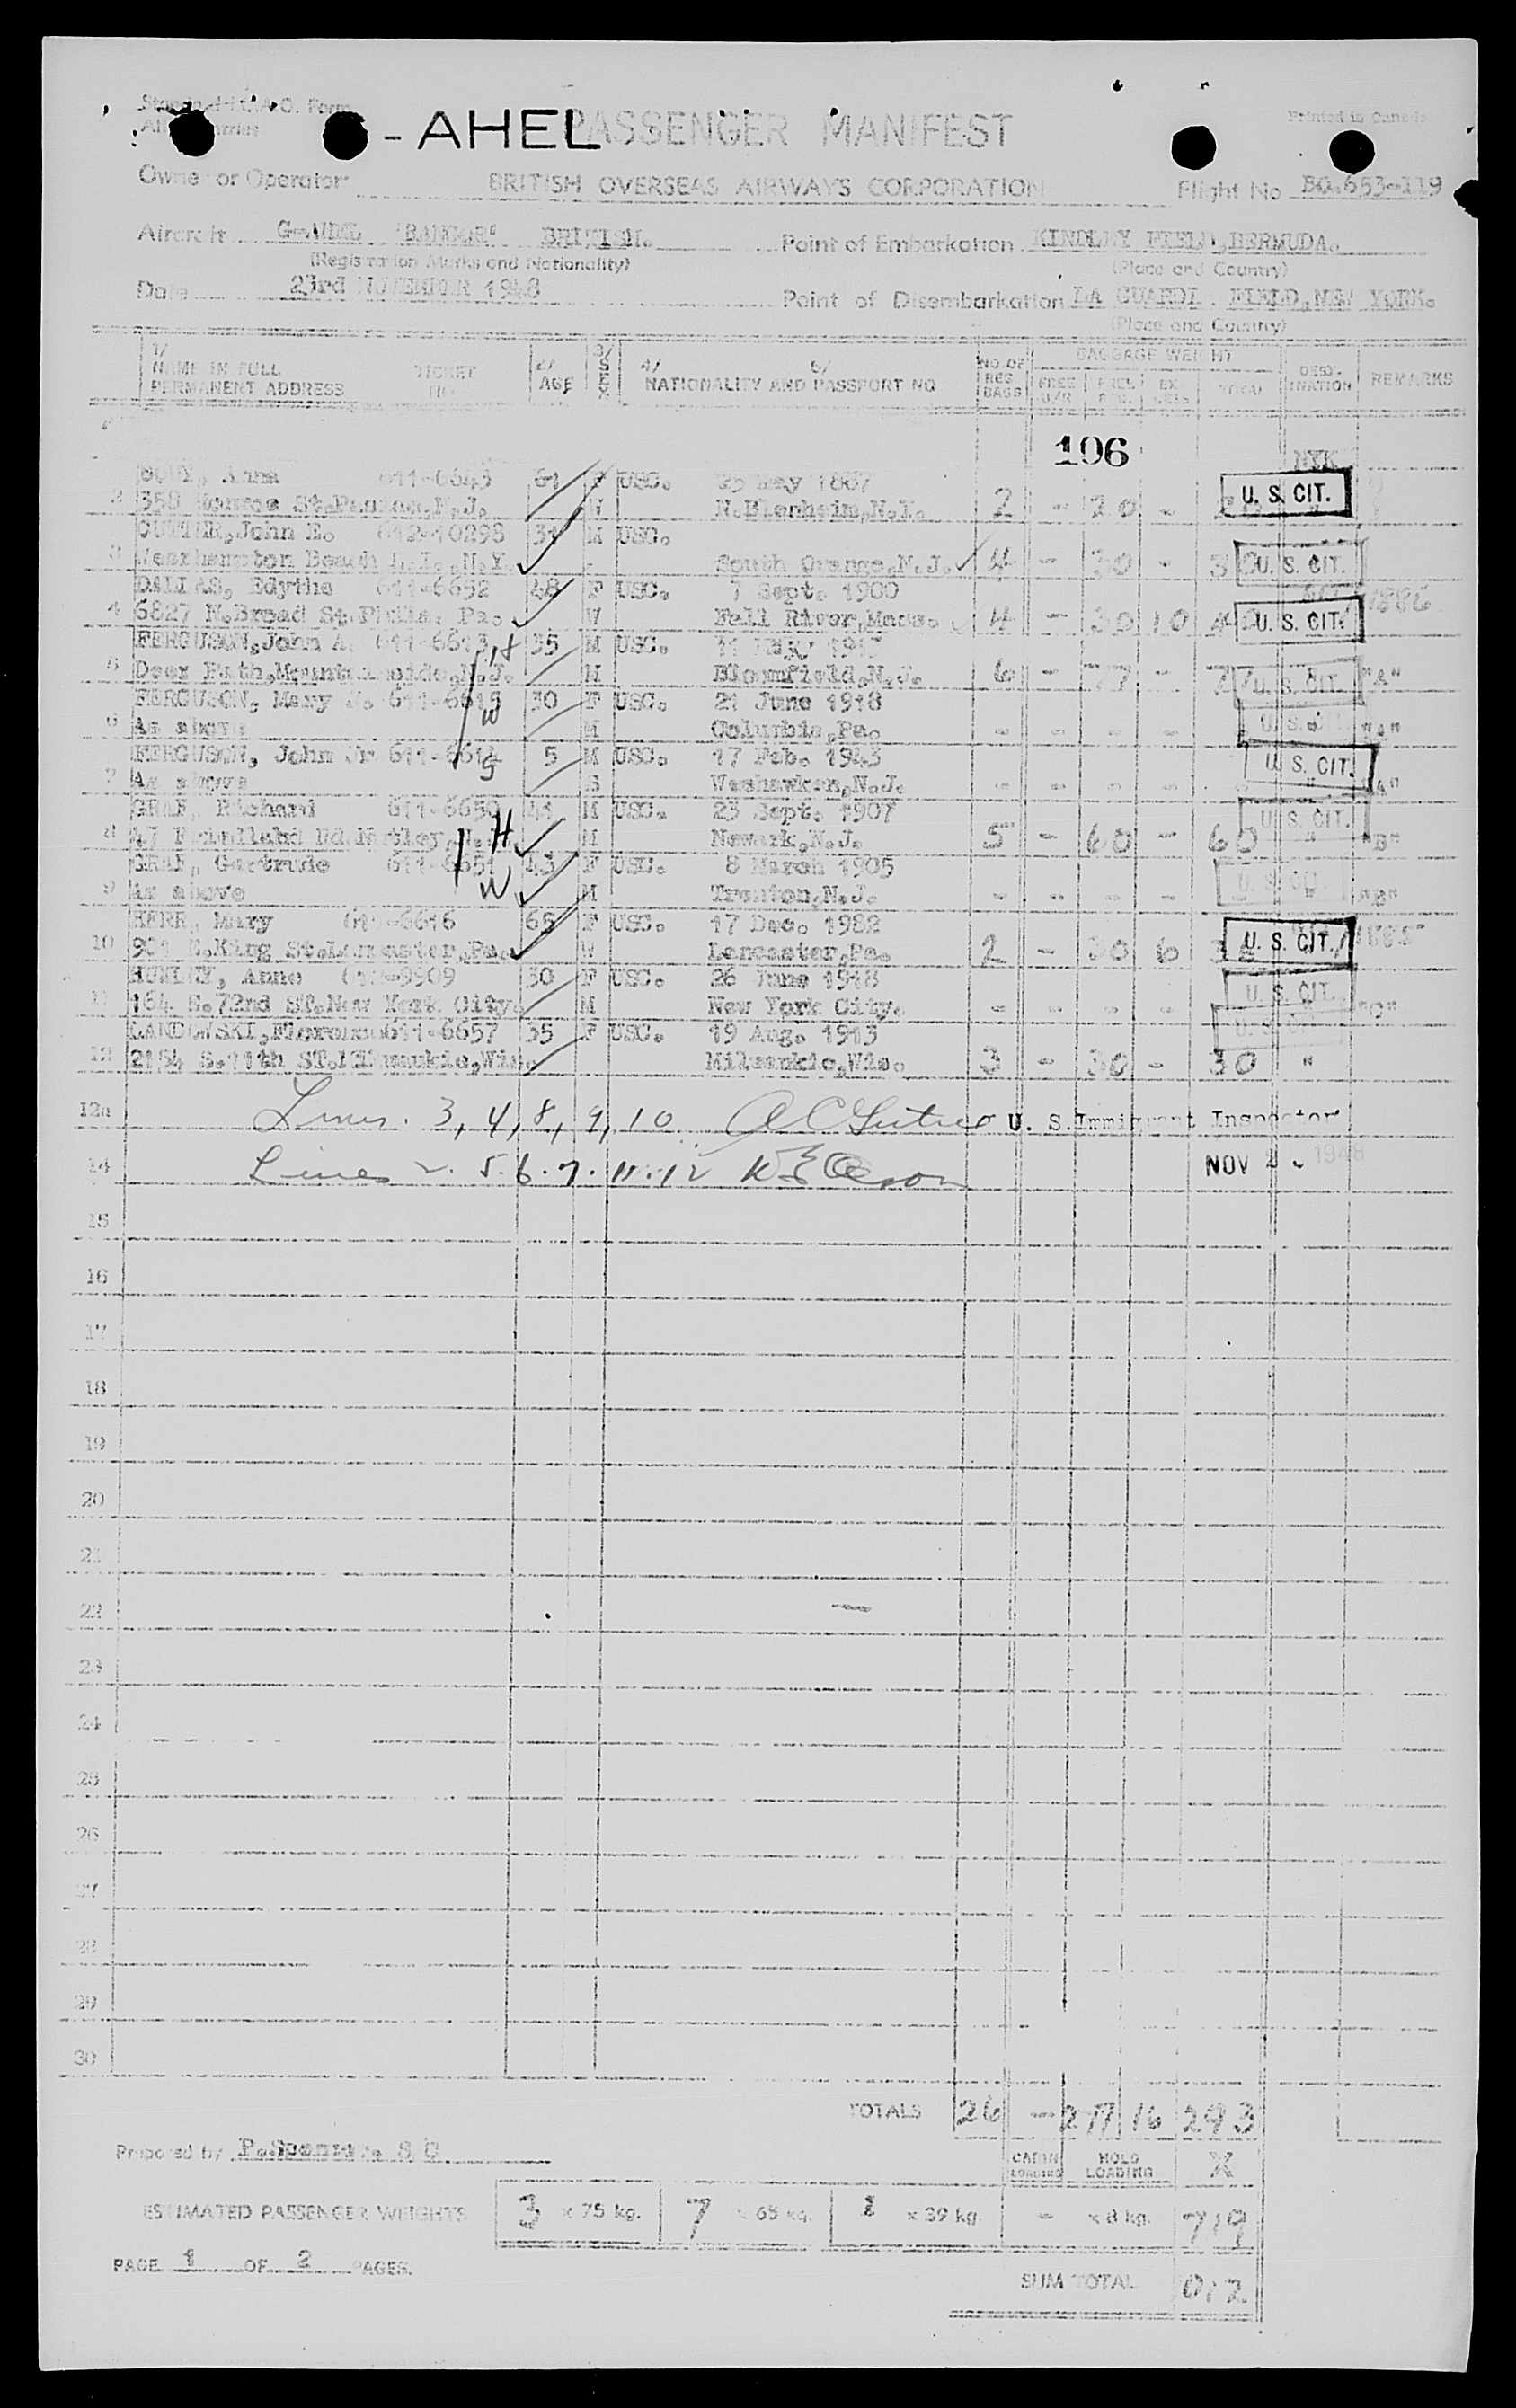 - AHEL PASSENGER MANIFEST
Printed in Canada
Owner or Operator BRITISH OVERSEAS AIRWAYS CORPORATION Flight No BG.653-119
Aircraft BRITISH. Point of Embarkation KINDLEY FIELD, BERMUDA.
(Registration Marks and Nationality) (Place and Country)
Date 23rd NOVEMBER 1948 Point of Disembarkation LA GUARDI FIELD, NEW YORK.
(Place and Country)
1/ NAME IN FULL PERMANENT ADDRESS TICKET NO. 2/ AGE 3/ SEX 4/ 5/ NATIONALITY AND PASSPORT NO NO. OF REG BAGS BAGGAGE WEIGHT TOTAL DESTINATION REMARKS
106
Anna 611-6643 61 F USC. 25 May 1887 NYK
2 358 St. N.J. W N.Blenheim, N.Y. 2 - 20 - U. S. CIT.
John E. 612-10298 31 M USC.
3 Westhampton Beach L.I., N.Y. South Orange, N.J. 4 - 30 - 30 U. S. CIT.
DALLAS, Edythe 611-6652 48 F USC. 7 Sept. 1900
4 6827 N.Broad St. Phila. Pa. W Fall River, Mass. 4 - 30 10 40 U. S. CIT.
FERGUSON, John A. 611-6613 H 35 M USC.
5 Deer Path, Mountainside, N.J. M Bloomfield, N.J. 6 - 77 - 77 U. S. CIT. "A"
FERGUSON, Mary 611-6615 30 F USC. 21 June 1918
6 As above W M Columbia, Pa. - - - - - U. S. CIT. "A"
FERGUSON, John Jr 611-6614 5 M USC. 17 Feb. 1943
7 As above S S Weehawken, N.J. - - - - - U. S. CIT. "A"
GRAF, Richard 611-6650 41 M USC. 23 Sept. 1907
8 47 Rd. Nutley, N.J. H M Newark, N.J. 5 - 60 - 60 U. S. CIT. " "B"
GRAF, Gertrude 611-6651 43 F USC. 8 March 1905
9 As above W M Trenton, N.J. - - - - U. S. CIT. " "B"
HERR, Mary 611-6616 65 F USC. 17 Dec. 1982
10 King St. Lancaster, Pa. W Lancaster, Pa. 2 - 30 6 36 U. S. CIT.
Anne 612-9909 30 F USC. 26 June 1918
11 164 72nd ST. New York City. M New York City. - - - - U. S. CIT. "C"
LANDOWSKI, Florence 611-6657 35 F USC. 19 Aug. 1913
12 2154 S.11th ST. Milwaukie, Wis. Milwaukie, Wis. 3 - 30 - 30 "
12a Lines. 3, 4, 8, 9, 10 U. S. Immigrant Inspector
14 Lines 2. 5. 6. 7. 11. 12 NOV 1948
15
16
17
18
19
20
21
22
23
24
25
26
27
28
29
30
TOTALS 26 - 277 16 293
Prepared by CABIN LOADING HOLD LOADING X
ESTIMATED PASSENGER WEIGHTS 3 x 75 kg. 7 x 65 kg. 1 x 39 kg. - x 8 kg. 719
PAGE 1 OF 2 PAGES.
SUM TOTAL 012